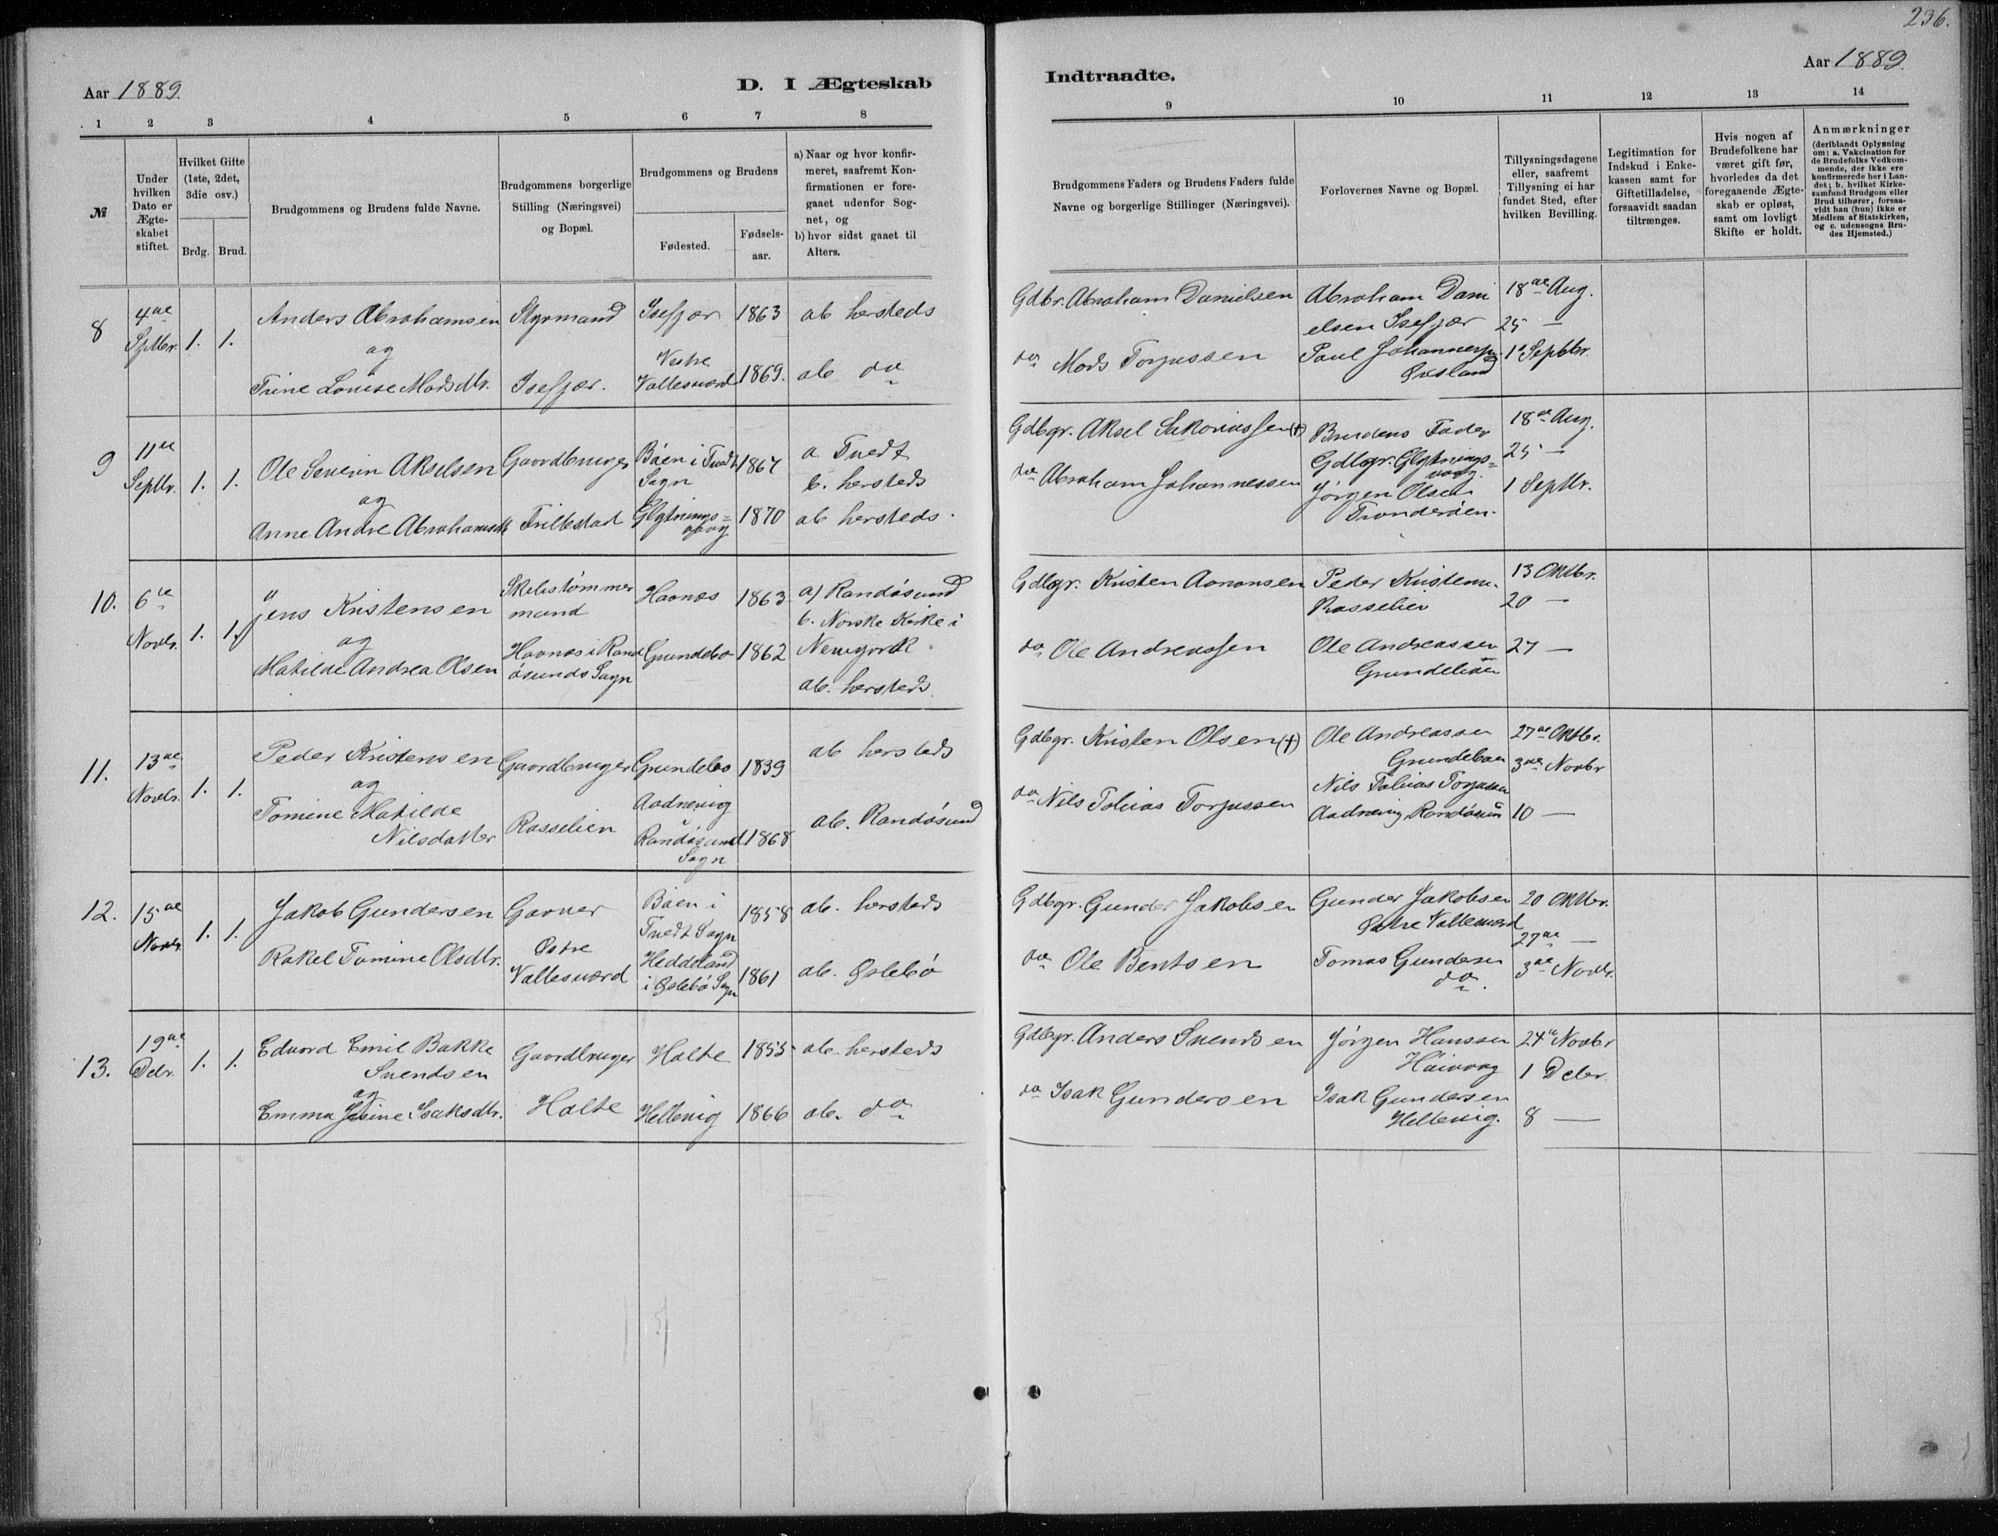 236.
Aar 1889.
D. I Ægteskab
Indtraadte.
Aar 1889.
1 2 3 4 5 6 7 8
9 10 11 12 13 14
№
Under
hvilken
Dato er
Ægte-
skabet
stiftet.
Hvilket Gifte
(1ste, 2det,
3die osv.)
Brdg. Brud.
Brudgommens og Brudens fulde Navne.
Brudgommens borgerlige
Stilling (Næringsvei)
og Bopæl.
Brudgommens og Brudens
Fødested.
Fødsels-
aar.
a) Naar og hvor konfir-
meret, saafremt Kon-
firmationen er fore-
gaaet udenfor Sog-
net, og
b) hvor sidst gaaet til
Alters.
Brudgommens Faders og Brudens Faders fulde
Navne og borgerlige Stillinger (Næringsvei).
Forlovernes Navne og Bopæl.
Tillysningsdagene
eller, saafremt
Tillysning ei har
fundet Sted, efter
hvilken Bevilling.
Legitimation for
Indskud i Enke-
kassen samt for
Giftetilladelse,
forsaavidt saadan
tiltrænges.
Hvis nogen af
Brudefolkene har
været gift før,
hvorledes da det
foregaaende Ægte-
skab er opløst,
samt om lovligt
Skifte er holdt.
Anmærkninger
(deriblandt Oplysning
om: a. Vakcination for
de Brudefolks Vedkom-
mende, der ikke ere
konfirmerede her i Lan-
det; b. hvilket Kirke-
samfund Brudgom eller
Brud tilhører, forsaa-
vidt han (hun) ikke er
Medlem af Statskirken,
og c. udensogns Bru-
des Hjemsted.)
8
4de
Septbr.
1. 1.
Anders Abrahamsen
og
Trine Louise Madsdtr.
Styrmand
Isefjær.
Isefjær
Vestre
Vallesværd
1863
1869.
ab hersteds
ab do
Gdbr. Abraham Danielsen
do Mads Torjussen
Abraham Dani
elsen Isefjær
Paul Johannessen
18de Aug.
25 —
1ste Septbr.
9
11te
Septbr.
1. 1.
Ole Severin Akselsen
og
Anne Andre Abrahamsdtr
Gaardbruger
Trillestad
Bøen i Tvedt
Sogn
Glytnings=
vaag
1867
1870
a Tvedt
b. hersteds
ab hersteds.
Gdbgr. Aksel Sakariassen (†)
do Abraham Johannessen
Brudens Fader
Gdbgr. Glytnings=
vaag
Jörgen Olsen
Tronderöen.
18de Aug.
25 —
1 Septbr.
10.
6te
Novbr.
1. 1.
Jens Kristensen
og
Matilde Andrea Olsen
Skibstømmer
mand
Haanæs i Rand
øsunds Sogn
Haanæs
Grundebø
1863
1862
a) Randøsund
b. Norske Kirke i
Newyork.
ab. hersteds.
Gdbgr. Kristen Aanonsen
do Ole Andreassen
Peder Kristens.
Rosselien
Ole Andreassen
Grundeböen
13 Oktbr.
20 —
27 —
11.
13de
Novbr.
1. 1.
Peder Kristensen
og
Tomine Matilde
Nilsdatter
Gaardbruger
Rosselien
Grundebø
Aadnevig
i
Randøsund
Sogn
1839
1868
ab hersteds
ab. Randøsund
Gdbgr. Kristen Olsen (†)
do Nils Tobias Torjussen
Ole Andreassen
Grundeboen
Nils Tobias Torjussen
Aadnevig Randøsund
27de Oktbr.
3die Novbr
10 —
12.
15de
Novbr.
1. 1.
Jakob Gundersen
Rakel Tomine Olsdtr.
Garver
Østre
Vallesværd
Bøen i
Tvedt Sogn
Heddeland
i Øslebø Sogn
1858
1861
ab. hersteds
ab. Øslebø
Gdbgr. Gunder Jakobsen
do Ole Bentsen
Gunder Jakobsen
Østre Vallesværd
Tomas Gundersen
do.
20 Oktbr.
27de —
3die Novbr.
13.
19de
Debr.
1. 1.
Edvard Emil Bakke
Svendsen
og
Emma Josine Isaksdtr.
Gaardbruger
Holte
Holte
Hellevig
1855
1866
ab. hersteds
ab. do
Gdbgr. Anders Svendsen
do Isak Gundersen
Jörgen Hanssen
Höivaag
Isak Gundersen
Hellevig.
24de Novbr
1 Debr.
8 —